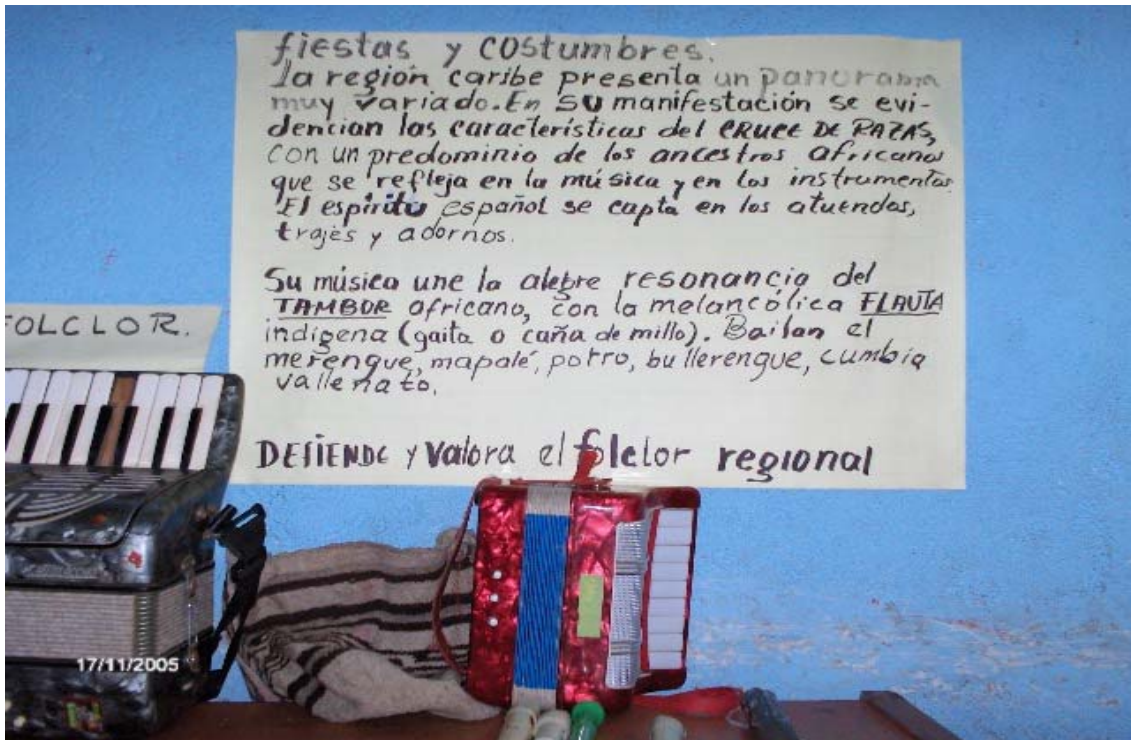 fiestas y costumbres.
la región caribe presenta un panorama
muy variado. En su manifestación se evi-
dencian las características del CRUCE DE RAZAS,
con un predominio de los ancestros africanos
que se refleja en la música y en los instrumentos.
El espíritu español se capta en los atuendos,
trajes y adornos.
Su música une la alegre resonancia del
TAMBOR africano, con la melancólica FLAUTA
indígena (gaita o caña de millo). Bailan el
merengue, mapalé, porro, bullerengue, cumbia
vallenato.
DEFIENDE y valora el folclor regional
FOLCLOR.
17/11/2005